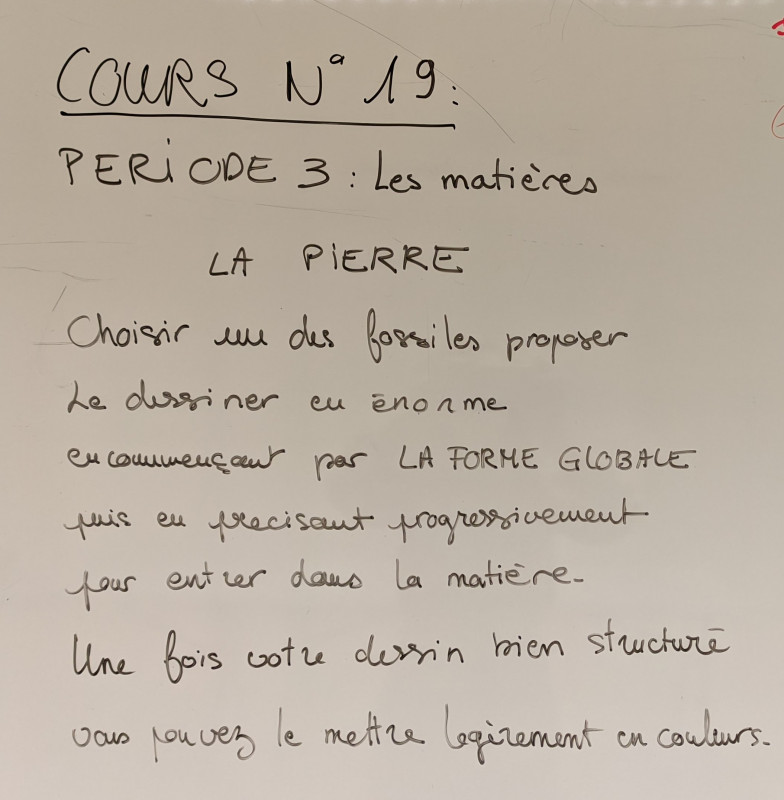 COURS N° 19:
PERIODE 3 : Les matières
LA PIERRE
Choisir un des fossiles proposer
Le dessiner en énorme
en commençant par LA FORME GLOBALE
puis en precisant progressivement
pour entrer dans la matière.
Une fois votre dessin bien structuré
vous pouvez le mettre legèrement en couleurs.